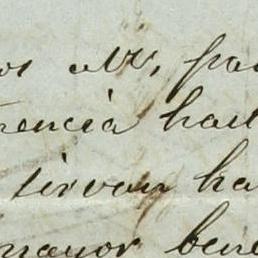 os
rencia hall
sirvan ha
mayor bene